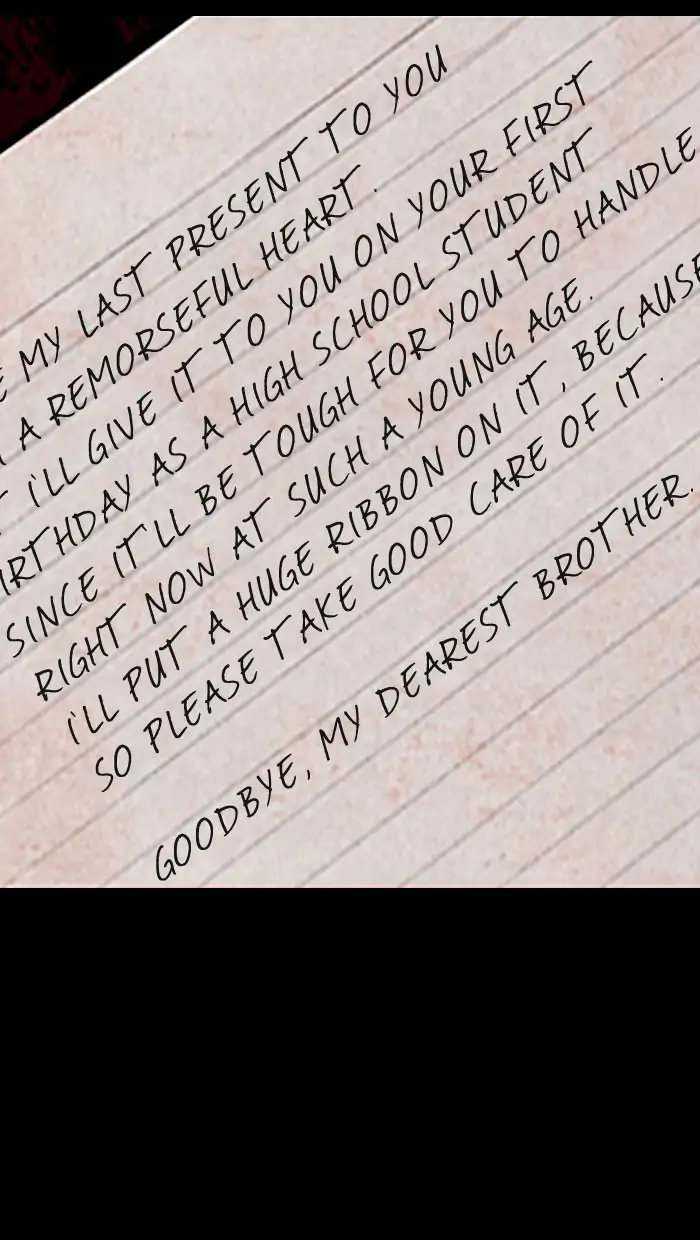 MY LAST PRESENT TO YOU
A REMORSEFUL HEART.
I'LL GIVE IT TO YOU ON YOUR FIRST
IRTHDAY AS A HIGH SCHOOL STUDENT
SINCE IT'LL BE TOUGH FOR YOU TO HANDLE
RIGHT NOW AT SUCH A YOUNG AGE.
I'LL PUT A HUGE RIBBON ON IT, BECAUSE
SO PLEASE TAKE GOOD CARE OF IT.
GOODBYE, MY DEAREST BROTHER.